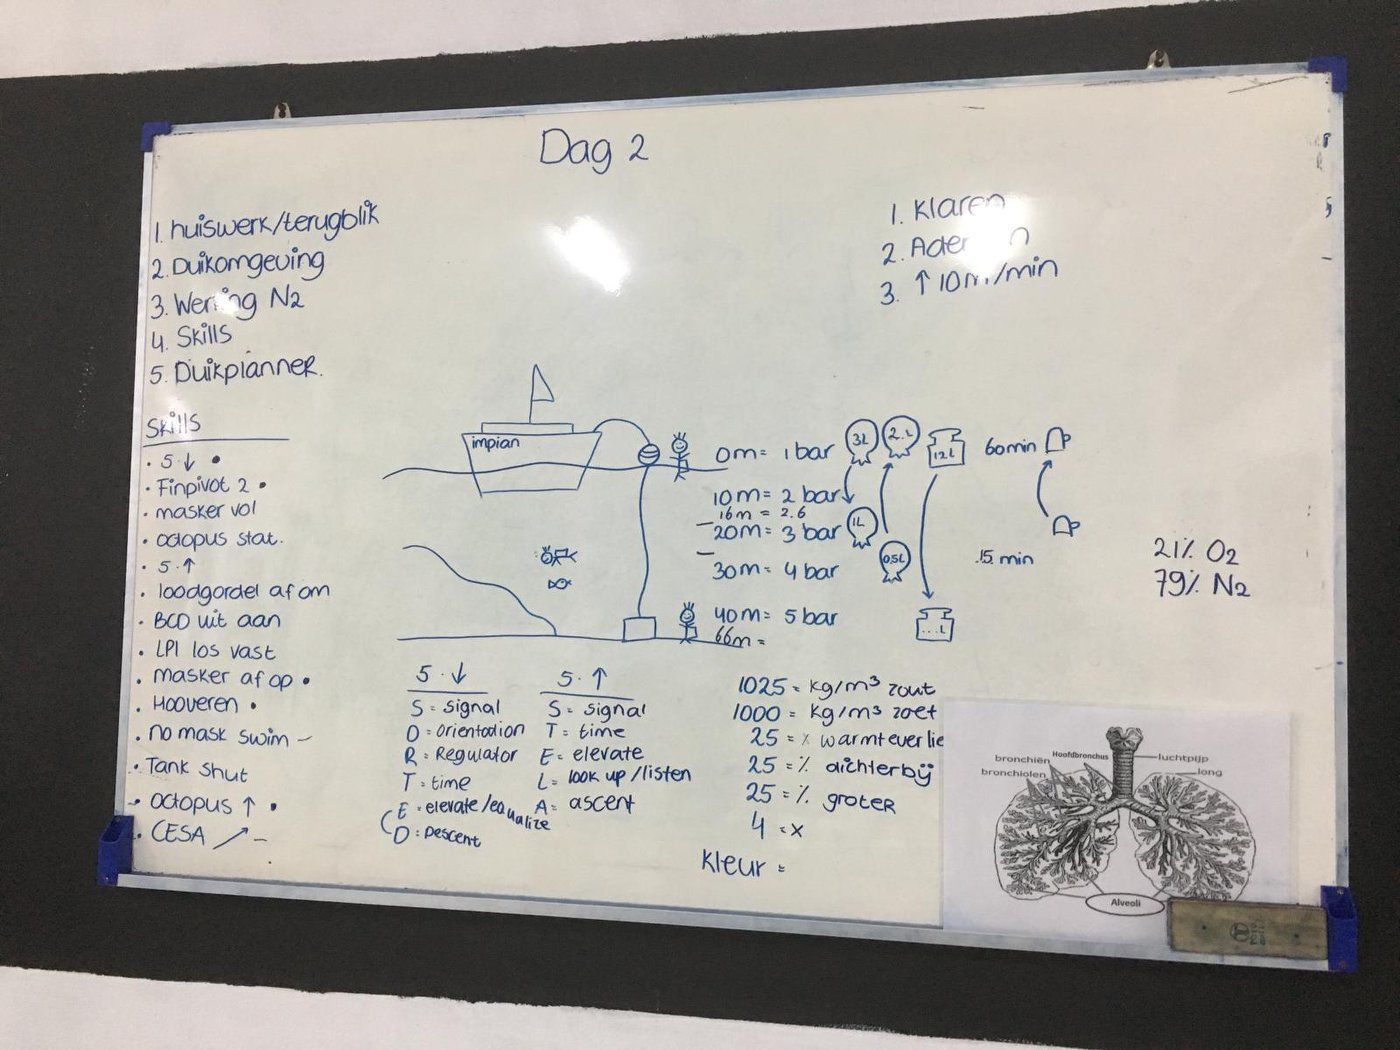 Dag 2
1. huiswerk/terugblik
2. Duikomgeving
3. Werking N2
4. Skills
5. Duikplanner.
1. Klaren
2.
3. ↑ 10m/min
Skills
• 5 · ↓ •
• Finpivot 2 •
• masker vol
• octopus stat.
• 5 · ↑
• loodgordel af om
• BCD uit aan
• LPI los vast
• masker af op •
• Hooveren •
• no mask swim –
• Tank shut
• octopus ↑ •
• CESA ↗ –
impian
0m = 1 bar
10m = 2 bar
16m = 2.6
20m = 3 bar
30m = 4 bar
40m = 5 bar
66m =
3L
2.L
12L
60min
1L
0,5L
15 min
...L
21% O2
79% N2
5 · ↓
S = signal
O = orientation
R = Regulator
T = time
E = elevate/equalize
D = Descent
5 · ↑
S = signal
T = time
E = elevate
L = look up/listen
A = ascent
1025 = kg/m³ zout
1000 = kg/m³ zoet
25 = x warmteverlie
25 = % dichterbij
25 = % groter
4 = x
Kleur =
Hoofdbronchus
bronchiën
bronchiolen
luchtpijp
long
Alveoli